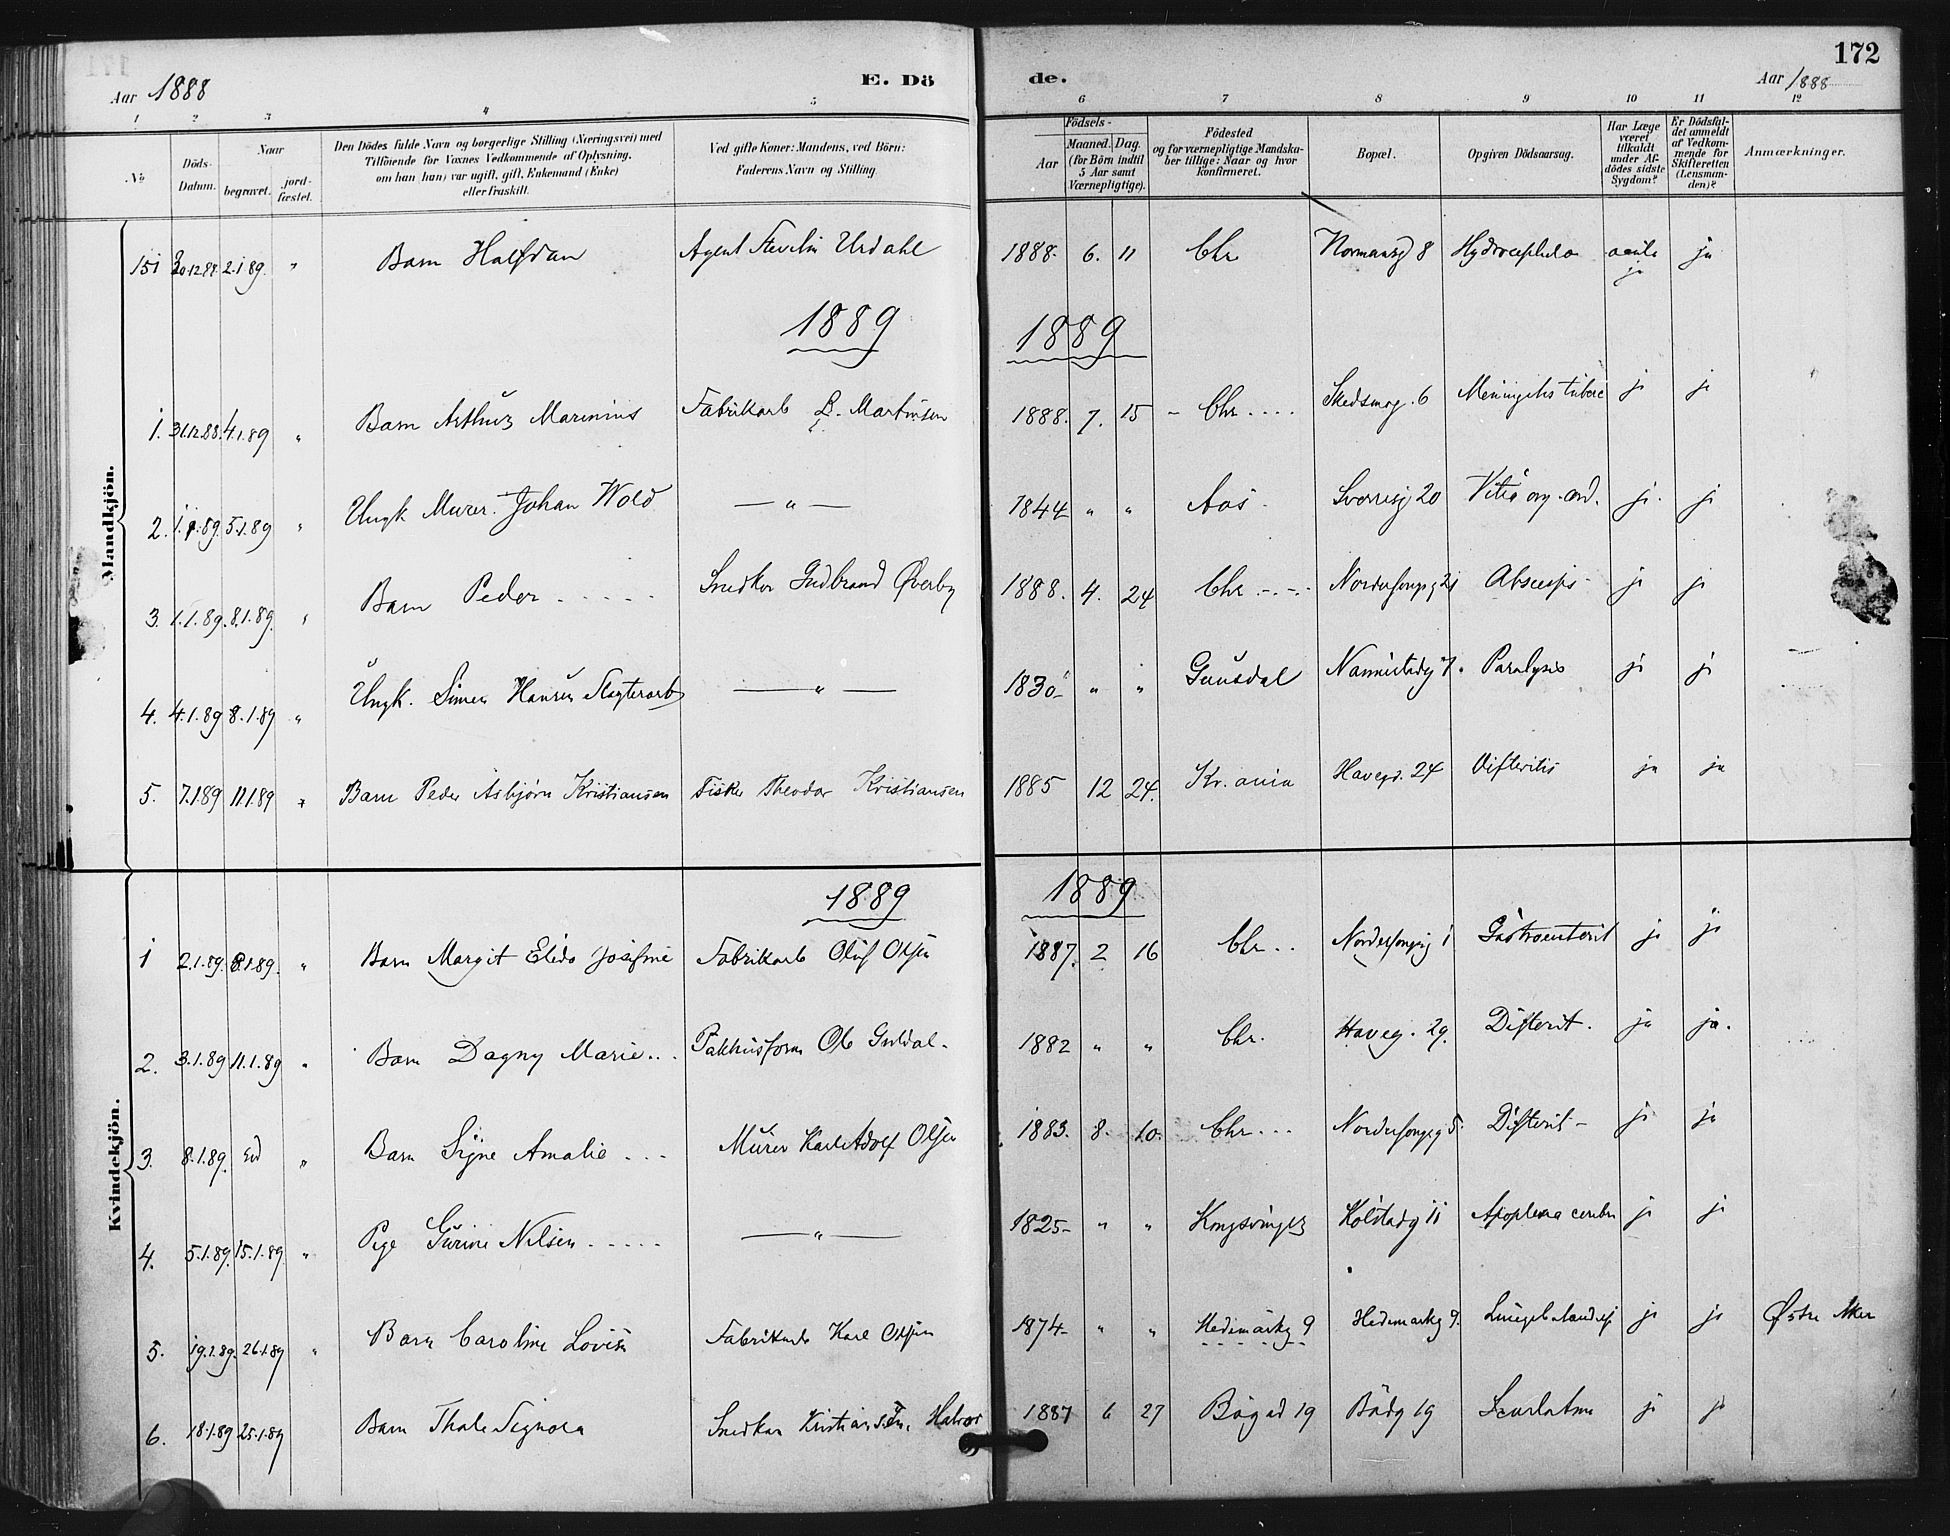 172
Aar 1888
E. Dö
de.
Aar 1888
1 2 3 4 5 6 7 8 9 10 11 12
No
Döds-Datum.
Naar
begravet.
jord-fæstet.
Den Dödes fulde Navn og borgerlige Stilling (Næringsvei) med
Tilföiende for Voxnes Vedkommende af Oplysning,
om han (hun) var ugift, gift, Enkemand (Enke)
eller fraskilt.
Ved gifte Koner: Mandens, ved Börn:
Faderens Navn og Stilling.
Födsels-
Aar
Maaned. Dag.
(for Börn indtil
5 Aar samt
Værnepligtige).
Födested
og for værnepligtige Mandska-
ber tillige: Naar og hvor
konfirmeret.
Bopæl.
Opgiven Dödsaarsag.
Har Læge
været
tilkaldt
under Af-
dödes sidste
Sygdom?
Er Dödsfal-
det anmeldt
af Vedkom-
mende for
Skifteretten
(Lensman-
den)?
Anmærkninger.
Mandkjön.
151 30.12.88 2.1.89. " Barn Halfdan Agent Urdahl 1888. 6. 11 Chr Normansg 8 ja ja
1889
1889
1. 31.12.88. 4.1.89 " Barn Arthur Marinius Fabrikarb L. Martinsen 1888. 7. 15 - Chr .... Skedsmog. 6 Meningitis tuberc ja ja
2. 1.1.89. 5.1.89 " Ungk Murer Johan Wold — " — 1844 " " Aas - Sverresg 20 Vitia org. cord. ja. ja
3. 1.1.89. 8.1.89. " Barn Peder ..... Snedker Gudbrand Øverby 1888. 4. 24 Chr .... ja ja
4. 4.1.89 8.1.89 " Ungk. Simen Hansen Slagterarb — " — 1830 " " Gausdal Nannestadg 7. Paralysis ja ja
5. 7.1.89 11.1.89 " Barn Peder Asbjørn Kristiansen Fisker Theodor Kristiansen 1885 12 24. Kr.ania Haveg. 24 Difteritis ja ja
Kvindekjön.
1889
1889
1 2.1.89. 8.1.89. " Barn Margit Josefine Fabrikarb Oluf Olsen 1887. 2 16 Chr .. Gastroenterit ja ja
2. 3.1.89 11.1.89 " Barn Dagny Marie .. Pakhusform Ole 1882 " " Chr. Haveg. 29. Difterit. ja ja.
3. 8.1.89. " Barn Signe Amalie ... Murer Karl Adolf Olsen 1883. 8. 10. Chr ... Difterit - ja ja
4. 5.1.89. 15.1.89. " Pige Gurine Nilsen ..... — " — 1825 - " " Kongsvinger Kolstadg 11 Apoplexia cerebri ja ja
5. 19.1.89. 26.1.89 " Barn Caroline Lovise Fabrikarb Karl Olsen 1874 - " " Hedemarkg 9 Hedemarkg 9. ja ja Østre Aker
6. 18.1.89 25.1.89 Barn Signora Snedker Kristiansen 1887 6 27 19 19 Scarlatina ja ja